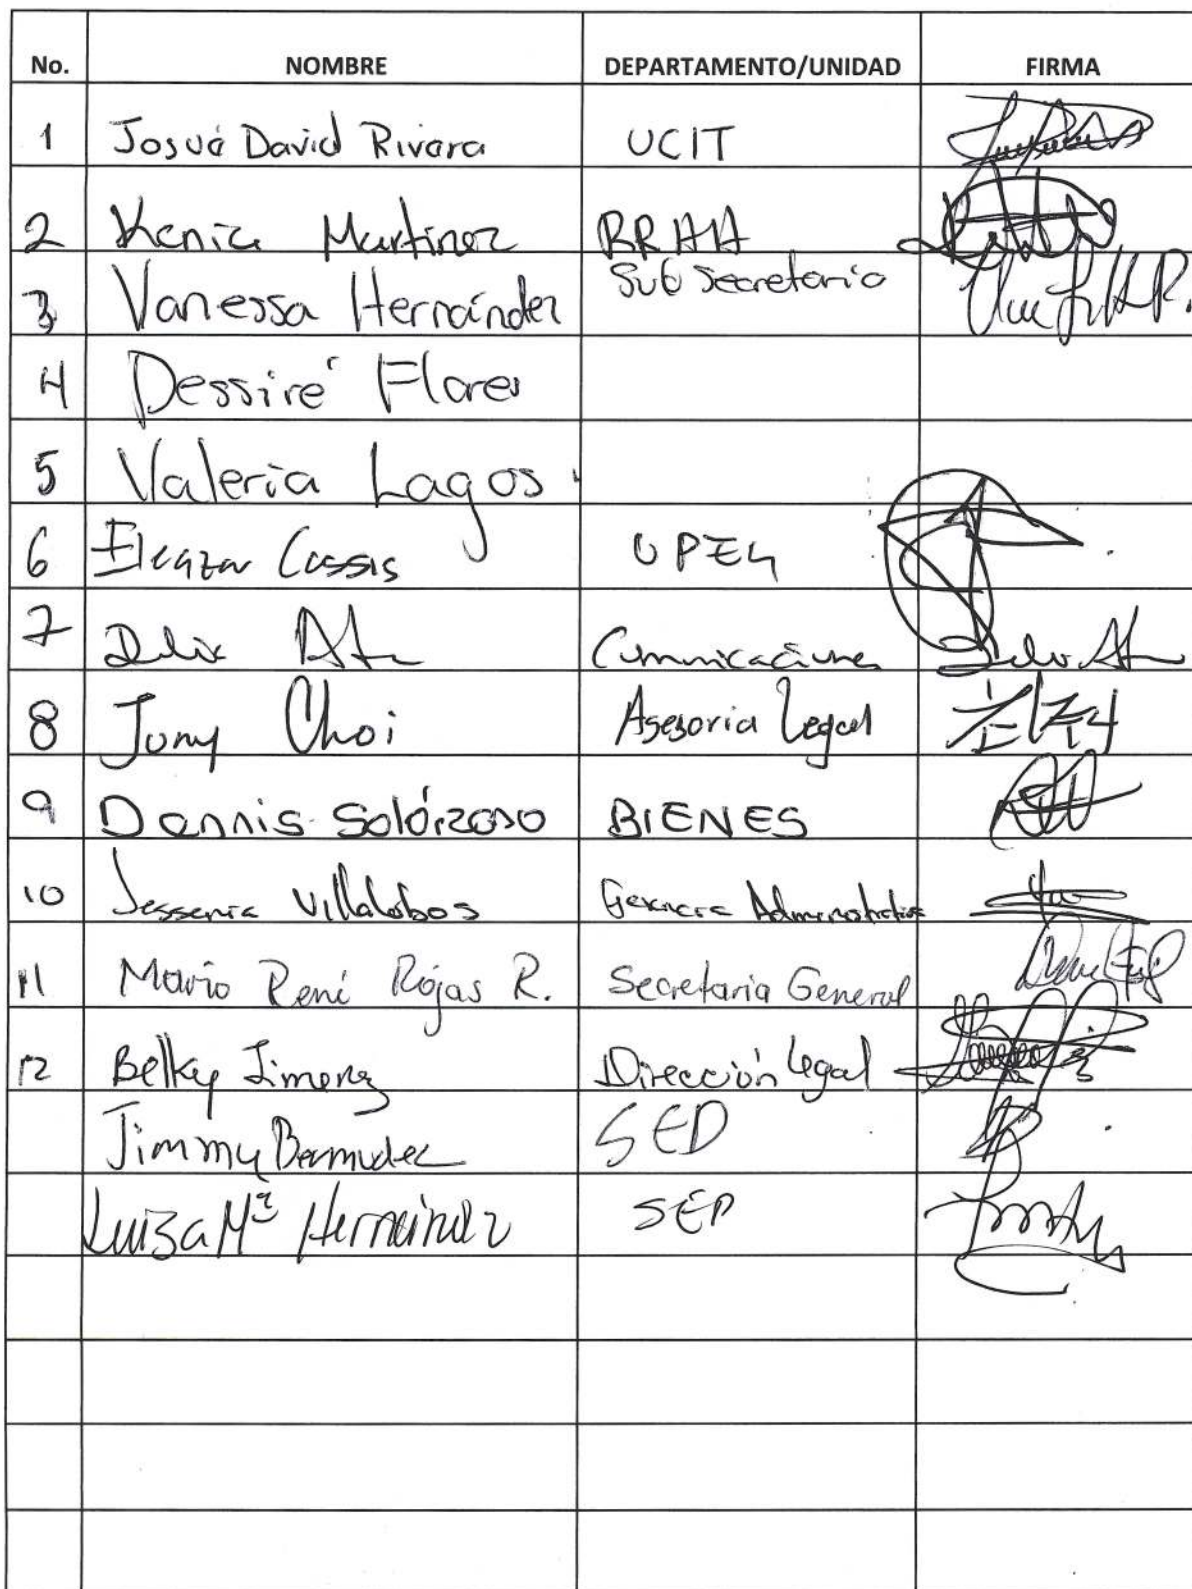 No. NOMBRE DEPARTAMENTO/UNIDAD FIRMA
1 Josué David Rivera UCIT
2 Kenia Martinez RRHH
3 Vanessa Hernández Sub Secretario
4 Dessiré Flores
5 Valeria Lagos
6 Eleazar Cassis UPEG
7 Comunicaciones
8 Jony Choi Asesoria Legal
9 Dennis Solórzano BIENES
10 Jessenia Villalobos Gerencia Administrativa
11 Mario René Rojas R. Secretaria General
12 Belky Jimenez Dirección Legal
Jimmy Bermudez SED
Luiza Mª Hernández SED